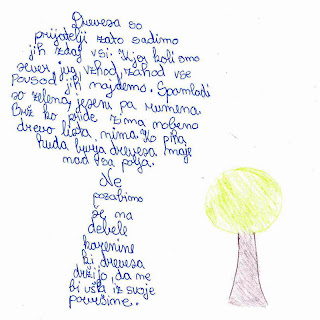 Drevesa so
prijatelji zato sadimo
jih zdaj vsi. Kjer koli smo
sever, jug, vzhod, zahod vse
povsod jih najdemo. Spomladi
so zelena, jeseni pa rumena.
Brž ko pride zima nobeno
drevo lista, nima. Ko piha
huda burja drevesa maje
nad vsa polja.
Ne
pozabimo
še na
debele
korenine
ki drevesa
držijo, da ne
bi ušli iz svoje
površine..